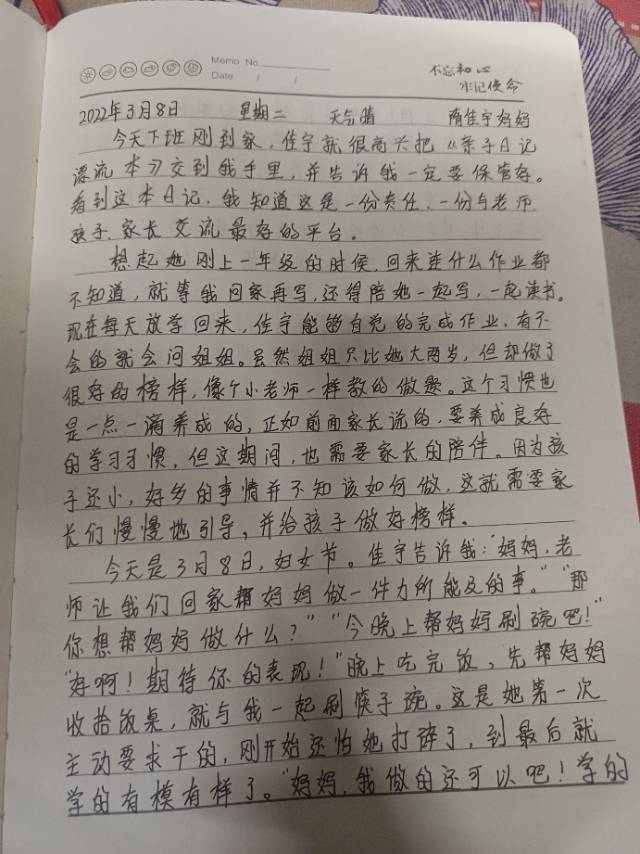 Memo No.
Date / /
不忘初心
牢记使命
2022年3月8日 星期二 天气晴 隋佳宇妈妈
今天下班刚到家，佳宇就很高兴把《亲子日记
漂流本》交到我手里，并告诉我一定要保管好。
看到这本日记，我知道这是一份责任，一份与老师
孩子、家长交流最好的平台。
想起她刚上一年级的时候，回来连什么作业都
不知道，就等我回家再写，还得陪她一起写，一起读书。
现在每天放学回来，佳宇能够自觉的完成作业，有不
会的就会问姐姐。虽然姐姐只比她大两岁，但却做了
很好的榜样，像个小老师一样教的做题。这个习惯也
是一点一滴养成的，正如前面家长说的，要养成良好
的学习习惯，但这期间，也需要家长的陪伴。因为孩
子还小，好多的事情并不知该如何做，这就需要家
长们慢慢地引导，并给孩子做好榜样。
今天是3月8日，妇女节。佳宇告诉我：“妈妈，老
师让我们回家帮妈妈做一件力所能及的事。”“那
你想帮妈妈做什么？”“今晚上帮妈妈刷碗吧！”
“好啊！期待你的表现！”晚上吃完饭，先帮妈妈
收拾饭桌，就与我一起刷筷子碗。这是她第一次
主动要求干的，刚开始还怕她打碎了，到最后就
学的有模有样了。“妈妈，我做的还可以吧！学的